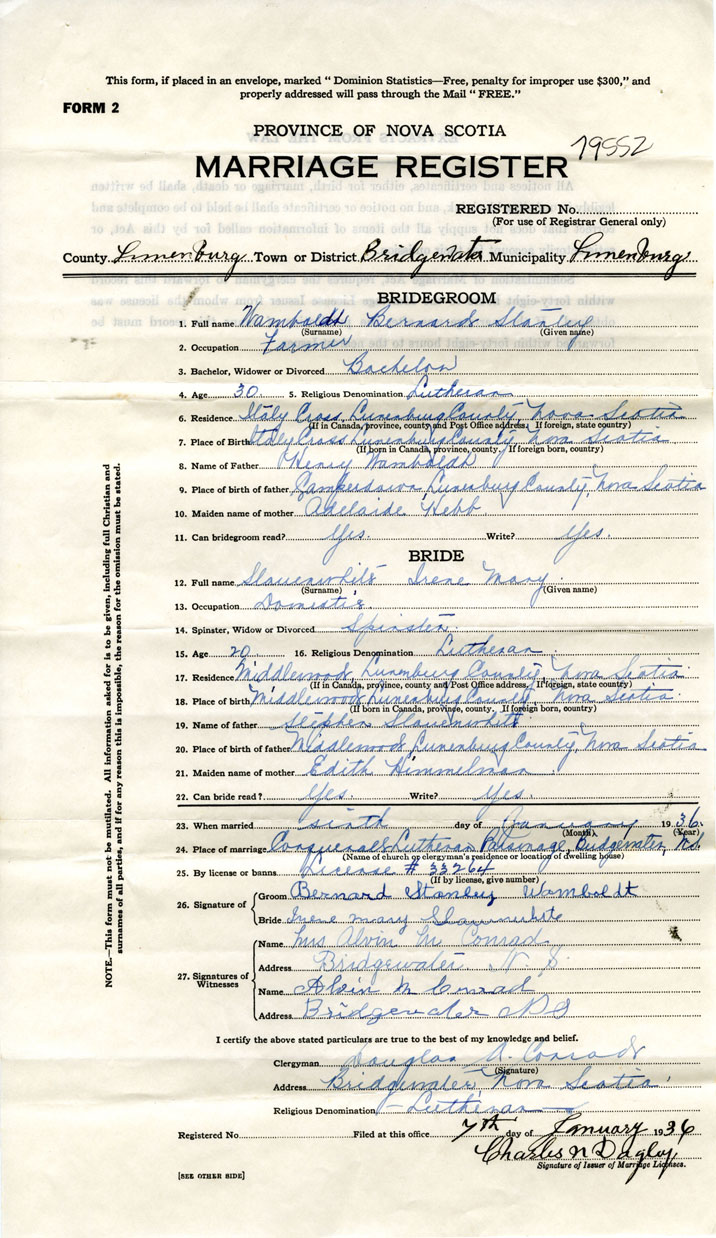 This form, if placed in an envelope, marked “ Dominion Statistics—Free, penalty for improper use $300,” and
properly addressed will pass through the Mail “ FREE.”
FORM 2
PROVINCE OF NOVA SCOTIA
19552
MARRIAGE REGISTER
REGISTERED No.
(For use of Registrar General only)
County Lunenburg Town or District Bridgewater Municipality Lunenburg
BRIDEGROOM
1. Full name Wamboldt Bernard Stanley
(Surname) (Given name)
2. Occupation Farmer
3. Bachelor, Widower or Divorced Bachelor
4. Age 30 5. Religious Denomination Lutheran
6. Residence Italy Cross, Lunenburg County, Nova Scotia
(If in Canada, province, county and Post Office address. If foreign, state country)
7. Place of Birth Italy Cross Lunenburg County, Nova Scotia
(If born in Canada, province, county. If foreign born, country)
8. Name of Father Henry Wamboldt
9. Place of birth of father Camperdown, Lunenburg County, Nova Scotia
10. Maiden name of mother Adelaide Hebb
11. Can bridegroom read? Yes. Write? Yes.
BRIDE
12. Full name Slauenwhite Irene Mary
(Surname) (Given name)
13. Occupation Domestic
14. Spinster, Widow or Divorced Spinster
15. Age 20 16. Religious Denomination Lutheran
17. Residence Middlewood, Lunenburg County, Nova Scotia
(If in Canada, province, county and Post Office address. If foreign, state country)
18. Place of birth Middlewood, Lunenburg County, Nova Scotia
(If born in Canada, province, county. If foreign born, country)
19. Name of father Stephen Slauenwhite
20. Place of birth of father Middlewood, Lunenburg County, Nova Scotia
21. Maiden name of mother Edith Himmelman
22. Can bride read? Yes. Write? Yes.
23. When married sixth day of January 1936
(Month) (Year)
24. Place of marriage Lutheran Parsonage, Bridgewater, N.S.
(Name of church or clergyman's residence or location of dwelling house)
25. By license or banns License # 33264
(If by license, give number)
26. Signature of
Groom Bernard Stanley Wamboldt
Bride Irene Mary Slauenwhite
27. Signatures of Witnesses
Name Mrs Alvin M Conrad
Address Bridgewater N. S.
Name Alvin M Conrad
Address Bridgewater N S
I certify the above stated particulars are true to the best of my knowledge and belief.
Clergyman Douglas A. Conrad
(Signature)
Address Bridgewater, Nova Scotia
Religious Denomination Lutheran
Registered No. Filed at this office 7th day of January 1936
Charles N Dagley
Signature of Issuer of Marriage Licenses.
[SEE OTHER SIDE]
NOTE.—This form must not be mutilated. All information asked for is to be given, including full Christian and
surnames of all parties, and if for any reason this is impossible, the reason for the omission must be stated.